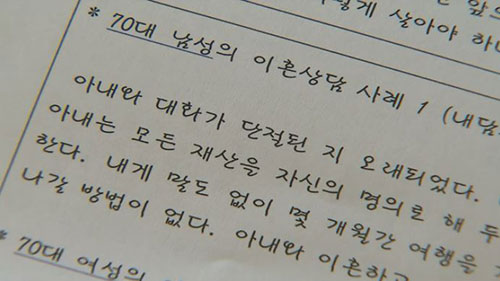 앞으
떻게 살아야 하
* 70대 남성의 이혼상담 사례 1 (내담
아내와 대화가 단절된 지 오래되었다.
아내는 모든 재산을 자신의 명의로 해 두
한다. 내게 말도 없이 몇 개월간 여행을
나갈 방법이 없다. 아내와 이혼하고
* 70대 여성의